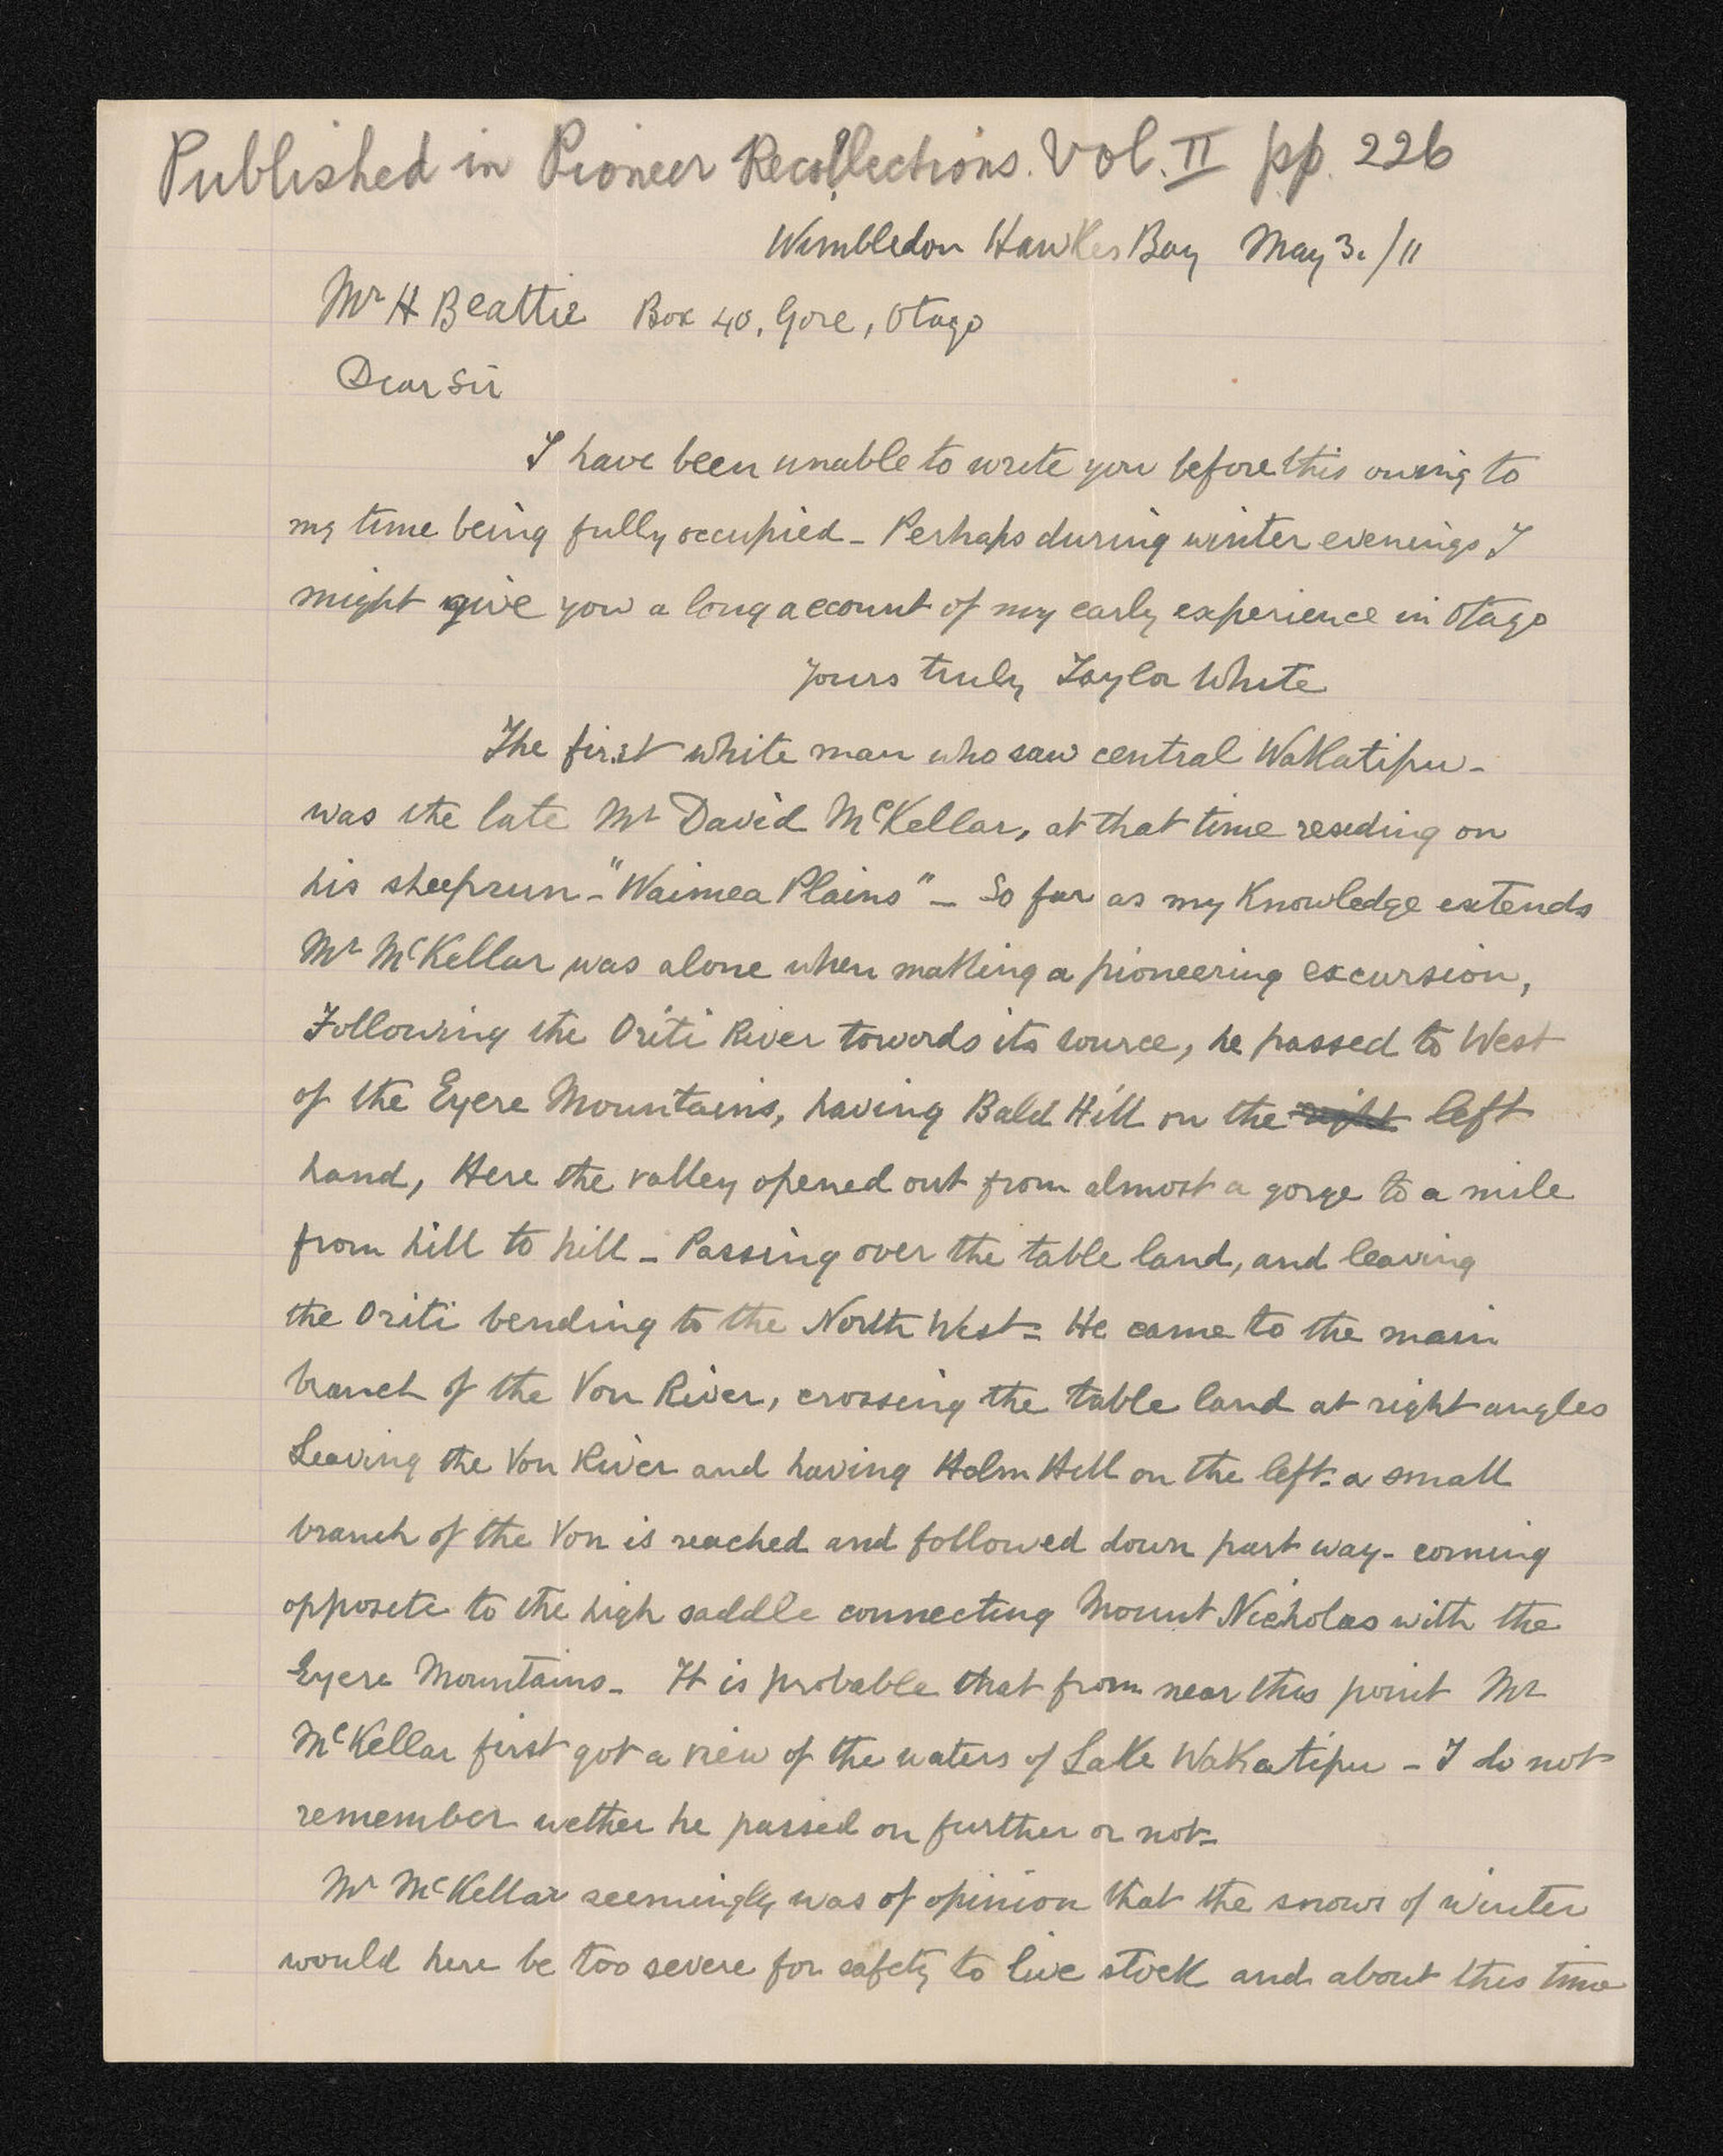 Published in Pioneer Recollections. Vol. II pp. 226
Wimbledon Hawkes Bay May 3. /11
Mr H Beattie Box 40, Gore, Otago
Dear Sir
I have been unable to write you before this owing to
my time being fully occupied - Perhaps during winter evenings I
might give you a long account of my early experience in Otago
Yours truly Taylor White
The first white man who saw central Wakatipu -
was the late Mr David McKellar, at that time resding on
his sheeprun - "Waimea Plains" - So far as my Knowledge extends
Mr McKellar was alone when making a pioneering excursion,
Following the Oriti River towards its source, he passed to West
of the Eyere Mountains, having Bald Hill on the right left
hand, Here the valley opened out from almost a gorge to a mile
from hill to hill - Passing over the table land, and leaving
the Oriti bending to the North West - He came to the main
branch of the Von River, crossing the table land at right angles
Leaving the Von River and having Holm Hill on the left - a small
branch of the Von is reached and followed down part way - coming
opposite to the high saddle connecting Mount Nicholas with the
Eyere Mountains - It is probable that from near this point Mr
McKellar first got a view of the waters of Lake Wakatipu - I do not
remember wether he passed on further or not -
Mr McKellar seemingly was of opinion that the snows of winter
would here be too severe for safety to live stock and about this time